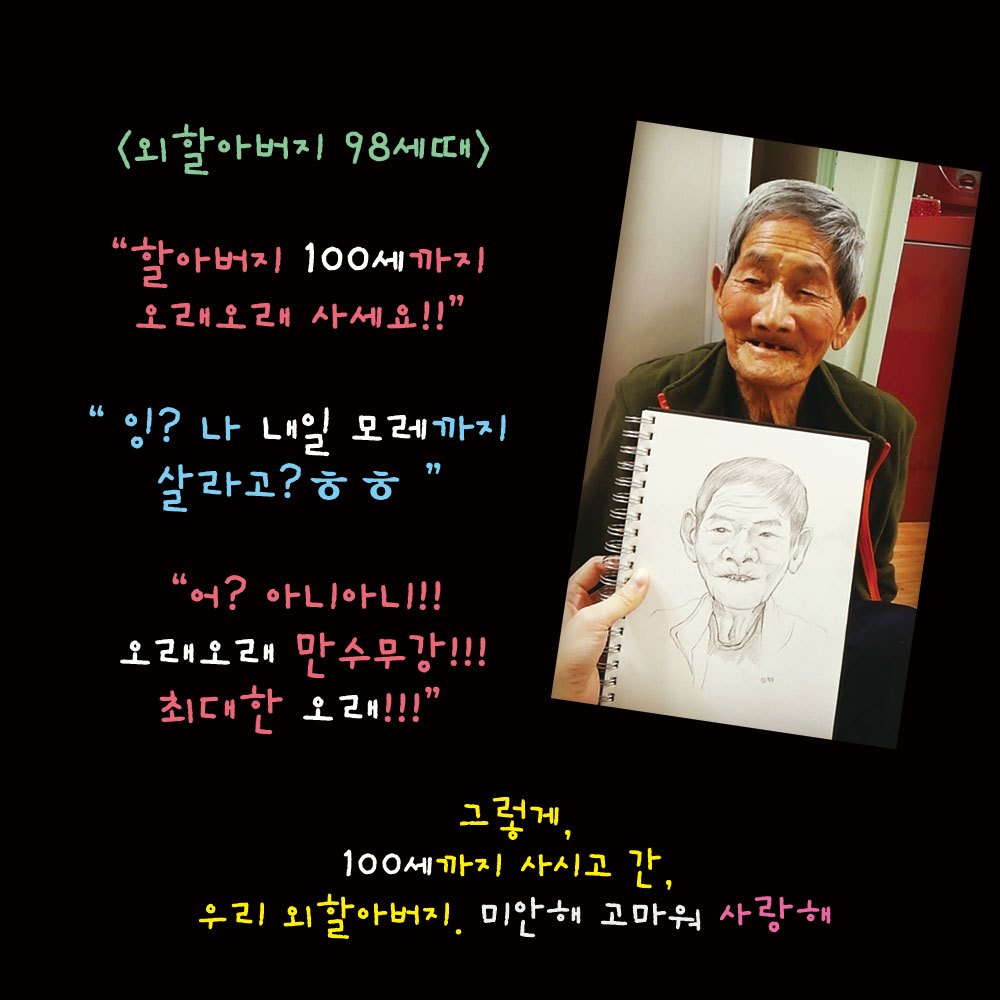 <외할아버지 98세때>
“할아버지 100세까지
오래오래 사세요!!”
“ 잉? 나 내일 모레까지
살라고?ㅎㅎ ”
“어? 아니아니!!
오래오래 만수무강!!!
최대한 오래!!!”
그렇게,
100세까지 사시고 간,
우리 외할아버지. 미안해 고마워 사랑해